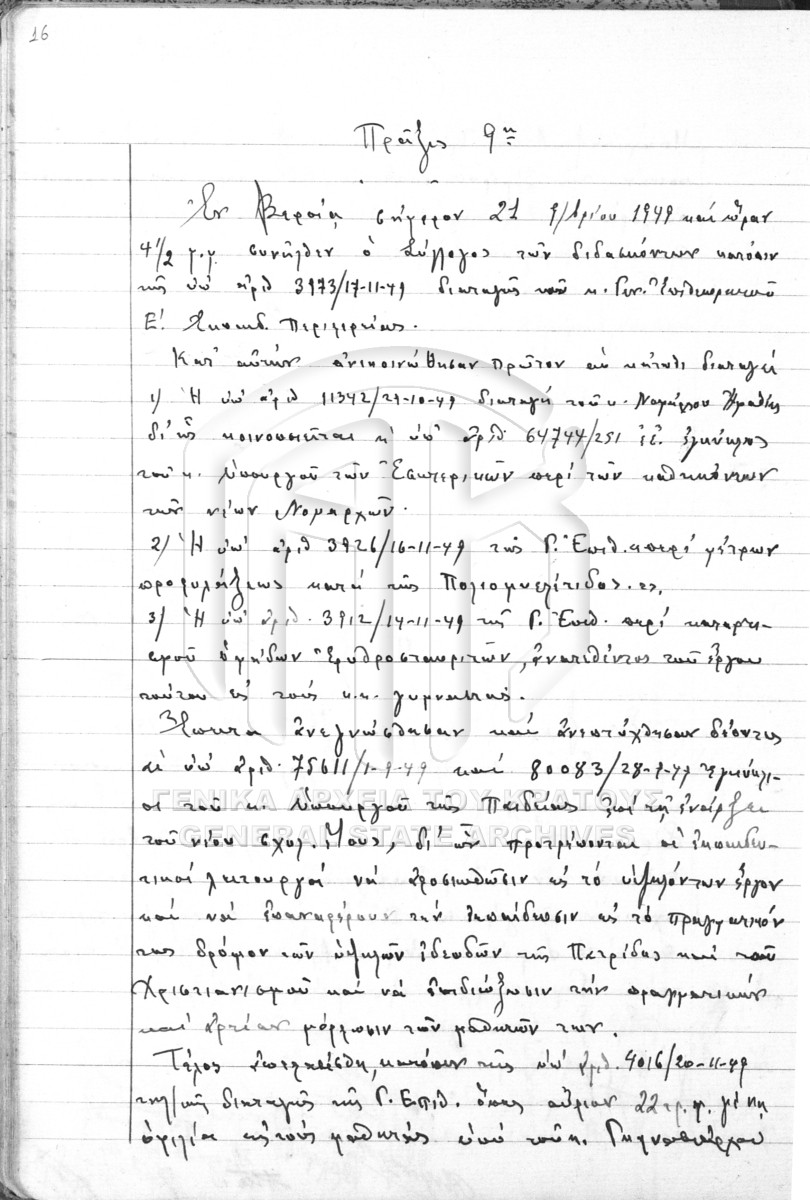 16
Πρᾶξις 9η
Ἐν Βεροίᾳ σήμερον 21 9/βρίου 1949 καί ὥραν
4 1/2 μ.μ. συνῆλθεν ὁ Σύλλογος τῶν διδασκόντων κατόπιν
τῆς ὑπ' ἀριθ 3973/17-11-49 διαταγῆς τοῦ κ. Γεν. Ἐπιθεωρητοῦ
Ε! Ἐκπαιδ. Περιφερείας.
Κατ' αὐτήν ἀνεκοινώθησαν πρῶτον αἱ κάτωθι διαταγαί
1) Ἡ ὑπ' ἀριθ 11342/29-10-49 διαταγή τοῦ κ. Νομάρχου Ἠμαθίας
δι' ἧς κοινοποιεῖται ἡ ὑπ' ἀριθ. 64744/251 ἐγκύκλιος
τοῦ κ. Ὑπουργοῦ τῶν Ἐσωτερικῶν περί τῶν καθηκόντων
τῶν νέων Νομαρχῶν.
2) Ἡ ὑπ' ἀριθ 3926/16-11-49 τῆς Γ. Ἐπιθ. περί μέτρων
προφυλάξεως κατά τῆς Πολιομυελίτιδος.
3) Ἡ ὑπ' ἀριθ. 3912/14-11-49 τῆς Γ. Ἐπιθ. περί καταρτι-
σμοῦ ὁμάδων Ἐρυθροσταυριτῶν, ἀνατεθέντος τοῦ ἔργου
τούτου εἰς τούς κ.κ. γυμναστάς.
Ἔπειτα ἀνεγνώσθησαν καί ἀνεπτύχθησαν δεόντως
αἱ ὑπ' ἀριθ. 75611/1-9-49 καί 80083/28-9-49 ἐγκύκλι-
οι τοῦ κ. Ὑπουργοῦ τῆς Παιδείας ἐπί τῇ ἐνάρξει
τοῦ νέου σχολ. ἔτους, δι' ὧν προτρέπονται οἱ ἐκπαιδευ-
τικοί λειτουργοί νά ἀφοσιωθῶσιν εἰς τό ὑψηλόν των ἔργον
καί νά ἐπαναφέρουν τήν ἐκπαίδευσιν εἰς τό πραγματικόν
της δρόμον τῶν ὑψηλῶν ἰδεωδῶν τῆς Πατρίδος καί τοῦ
Χριστιανισμοῦ καί νά ἐπιδιώξωσιν τήν πραγματικήν
καί ἀρτίαν μόρφωσιν τῶν μαθητῶν των.
Τέλος ἀπεφασίσθη, κατόπιν τῆς ὑπ' ἀριθ. 4016/20-11-49
τηλ/κῆς διαταγῆς τῆς Γ. Ἐπιθ. ὅπως αὔριον 22 τρ. μ. γίνῃ
ὁμιλία εἰς τούς μαθητάς ὑπό τοῦ κ. Γυμνασιάρχου
ΓΕΝΙΚΑ ΑΡΧΕΙΑ ΤΟΥ ΚΡΑΤΟΥΣ
GENERAL STATE ARCHIVES